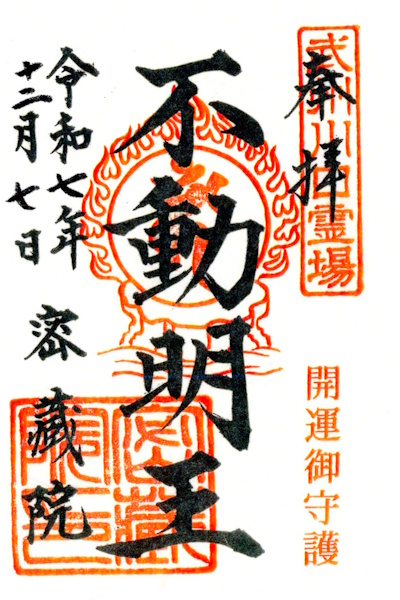 奉拝
武州川口霊場
開運御守護
不動明王
令和七年
十二月七日
密蔵院